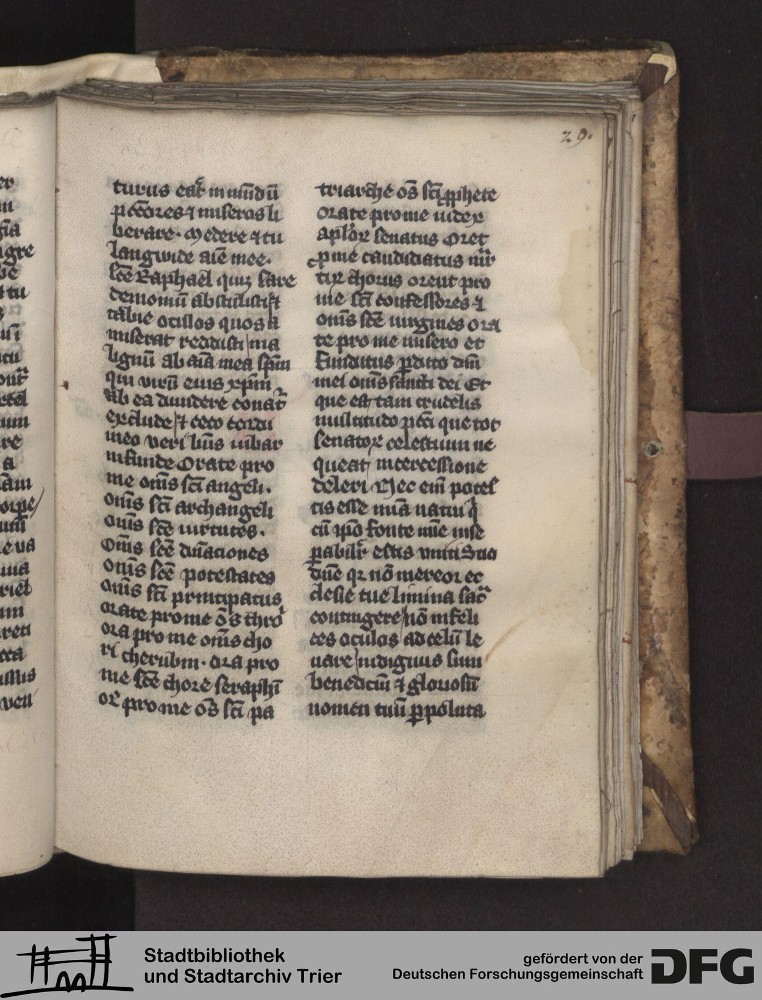 29.
turus erat in mūdū
pctōres ⁊ miseros li
berare. Medere ⁊ tu
languide aīe mee.
scē Raphael qui sare
demoniū abstulisti ⁊
tobie oculos quos a
miserat reddisti ma
lignū ab aīa mea spm̄
qui virū eius xpm̄
ab ea diuidere conat̄
exclude ⁊ ceco cordi
meo veri lumīs iubar
infunde Orate pro
me om̄s scī angeli.
om̄s scī archangeli
om̄s scē uirtutes.
Om̄s scē dn̄aciones
om̄s scē potestates
om̄s scī principatus
orate pro me ōs thrō
ora pro me om̄is cho
ri cherubin. ora pro
me scē chore seraphī
or̄ pro me ōs scī pa
triarche ōs scī ꝓphete
orate pro me iudex
aplōꝝ senatus Oret
ꝓ me candidatus mr̄
tiꝝ chorus orent pro
me scī confessores ⁊
om̄s scē uirgines ora
te pro me misero et
funditus ꝑdito dm̄
mei om̄s sancti dei Et
que est tam crudelis
multitudo pctī que tot
senatoꝝ celestium ne
queat intercessione
deleri Nec eīm potes
tis esse
cū ipō fonte mīe inse
ꝑabilit̄ estis uniti Suo
dn̄e qꝛ nō mereor ec
clesie tue limina sac̄
contingere nō infeli
ces oculos ad celū le
uare indignus sum
benedictū ⁊ gloriosū
nomen tuū ꝑ polluta
er
tu
Stadtbibliothek
und Stadtarchiv Trier
gefördert von der
Deutschen Forschungsgemeinschaft
DFG